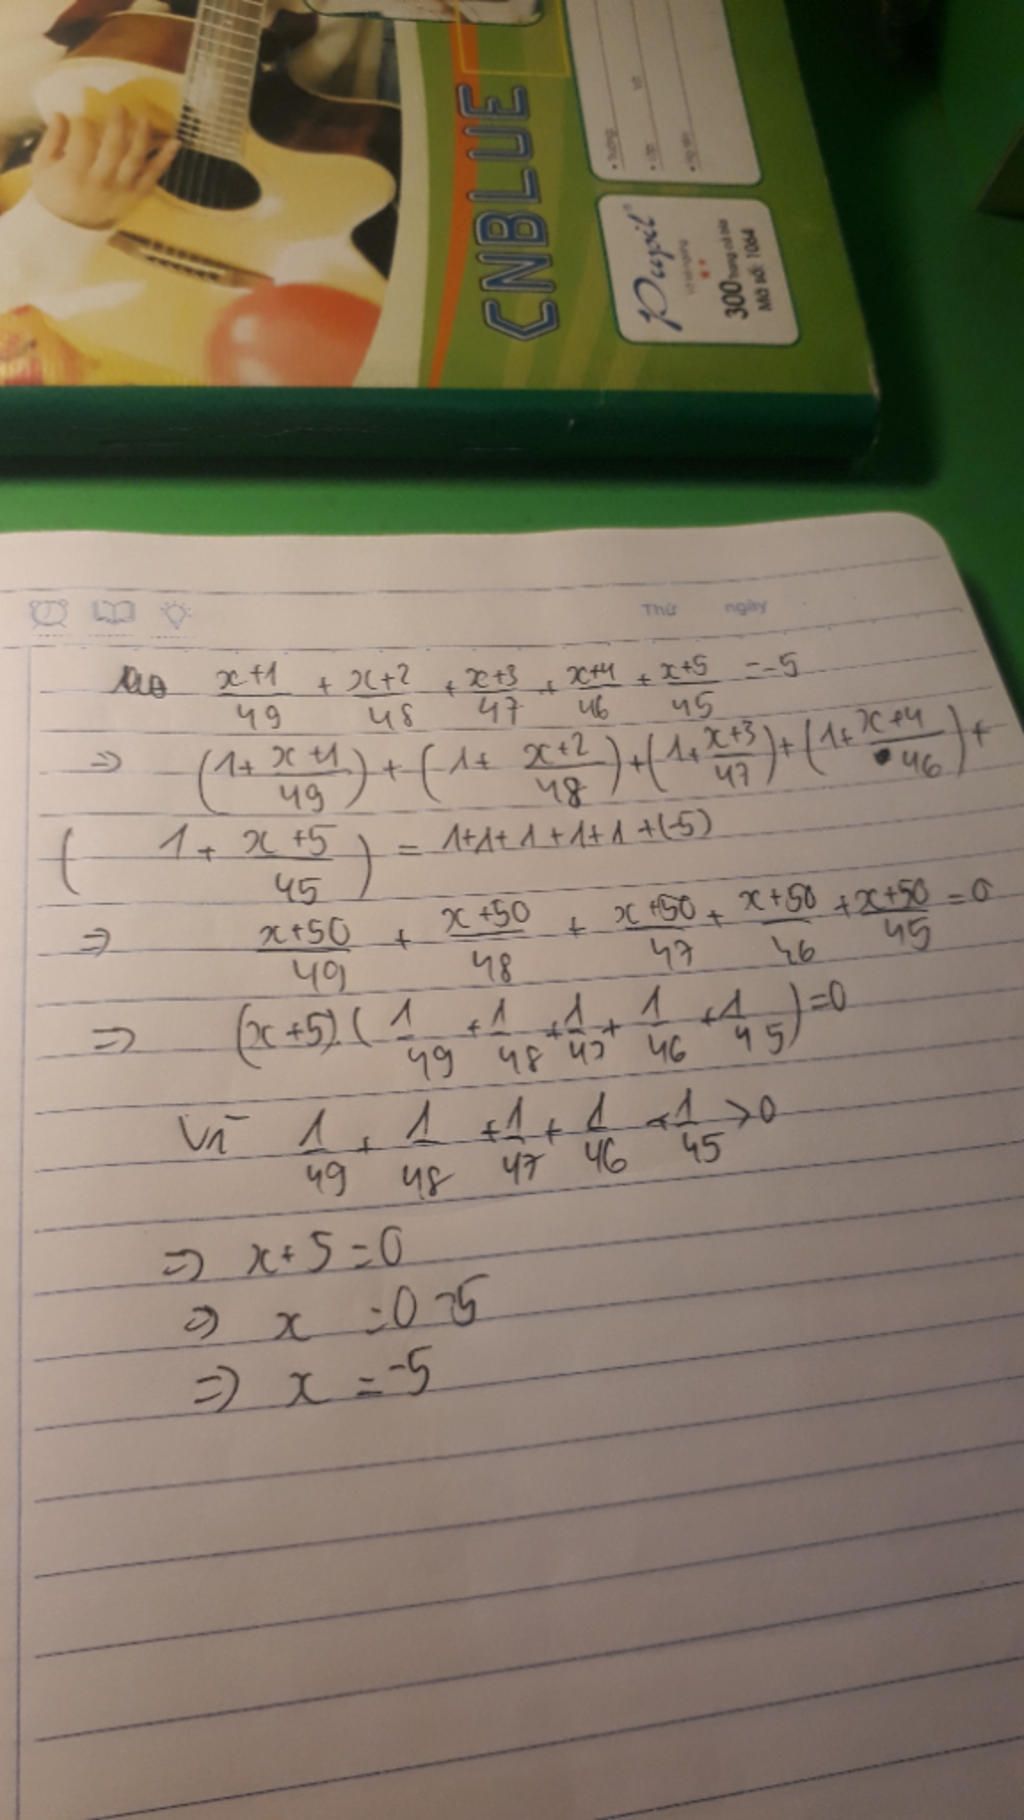 CNBLUE
• Trường
• Lớp
Pupil
300 trang cả bìa
Mã số: 1064
Thứ ngày
x+1/49 + x+2/48 + x+3/47 + x+4/46 + x+5/45 = -5
=> (1 + x+1/49) + (1 + x+2/48) + (1 + x+3/47) + (1 + x+4/46) +
(1 + x+5/45) = 1+1+1+1+1+(-5)
=> x+50/49 + x+50/48 + x+50/47 + x+50/46 + x+50/45 = 0
=> (x+5)(1/49 + 1/48 + 1/47 + 1/46 + 1/45) = 0
Vì 1/49 + 1/48 + 1/47 + 1/46 + 1/45 > 0
=> x+5 = 0
=> x = 0-5
=> x = -5